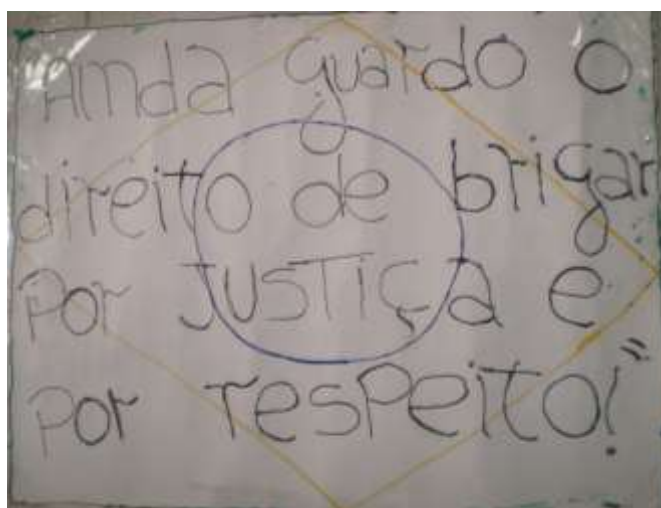 Ainda guardo o
direito de brigar
Por JUSTIÇA e
Por resPeito!"